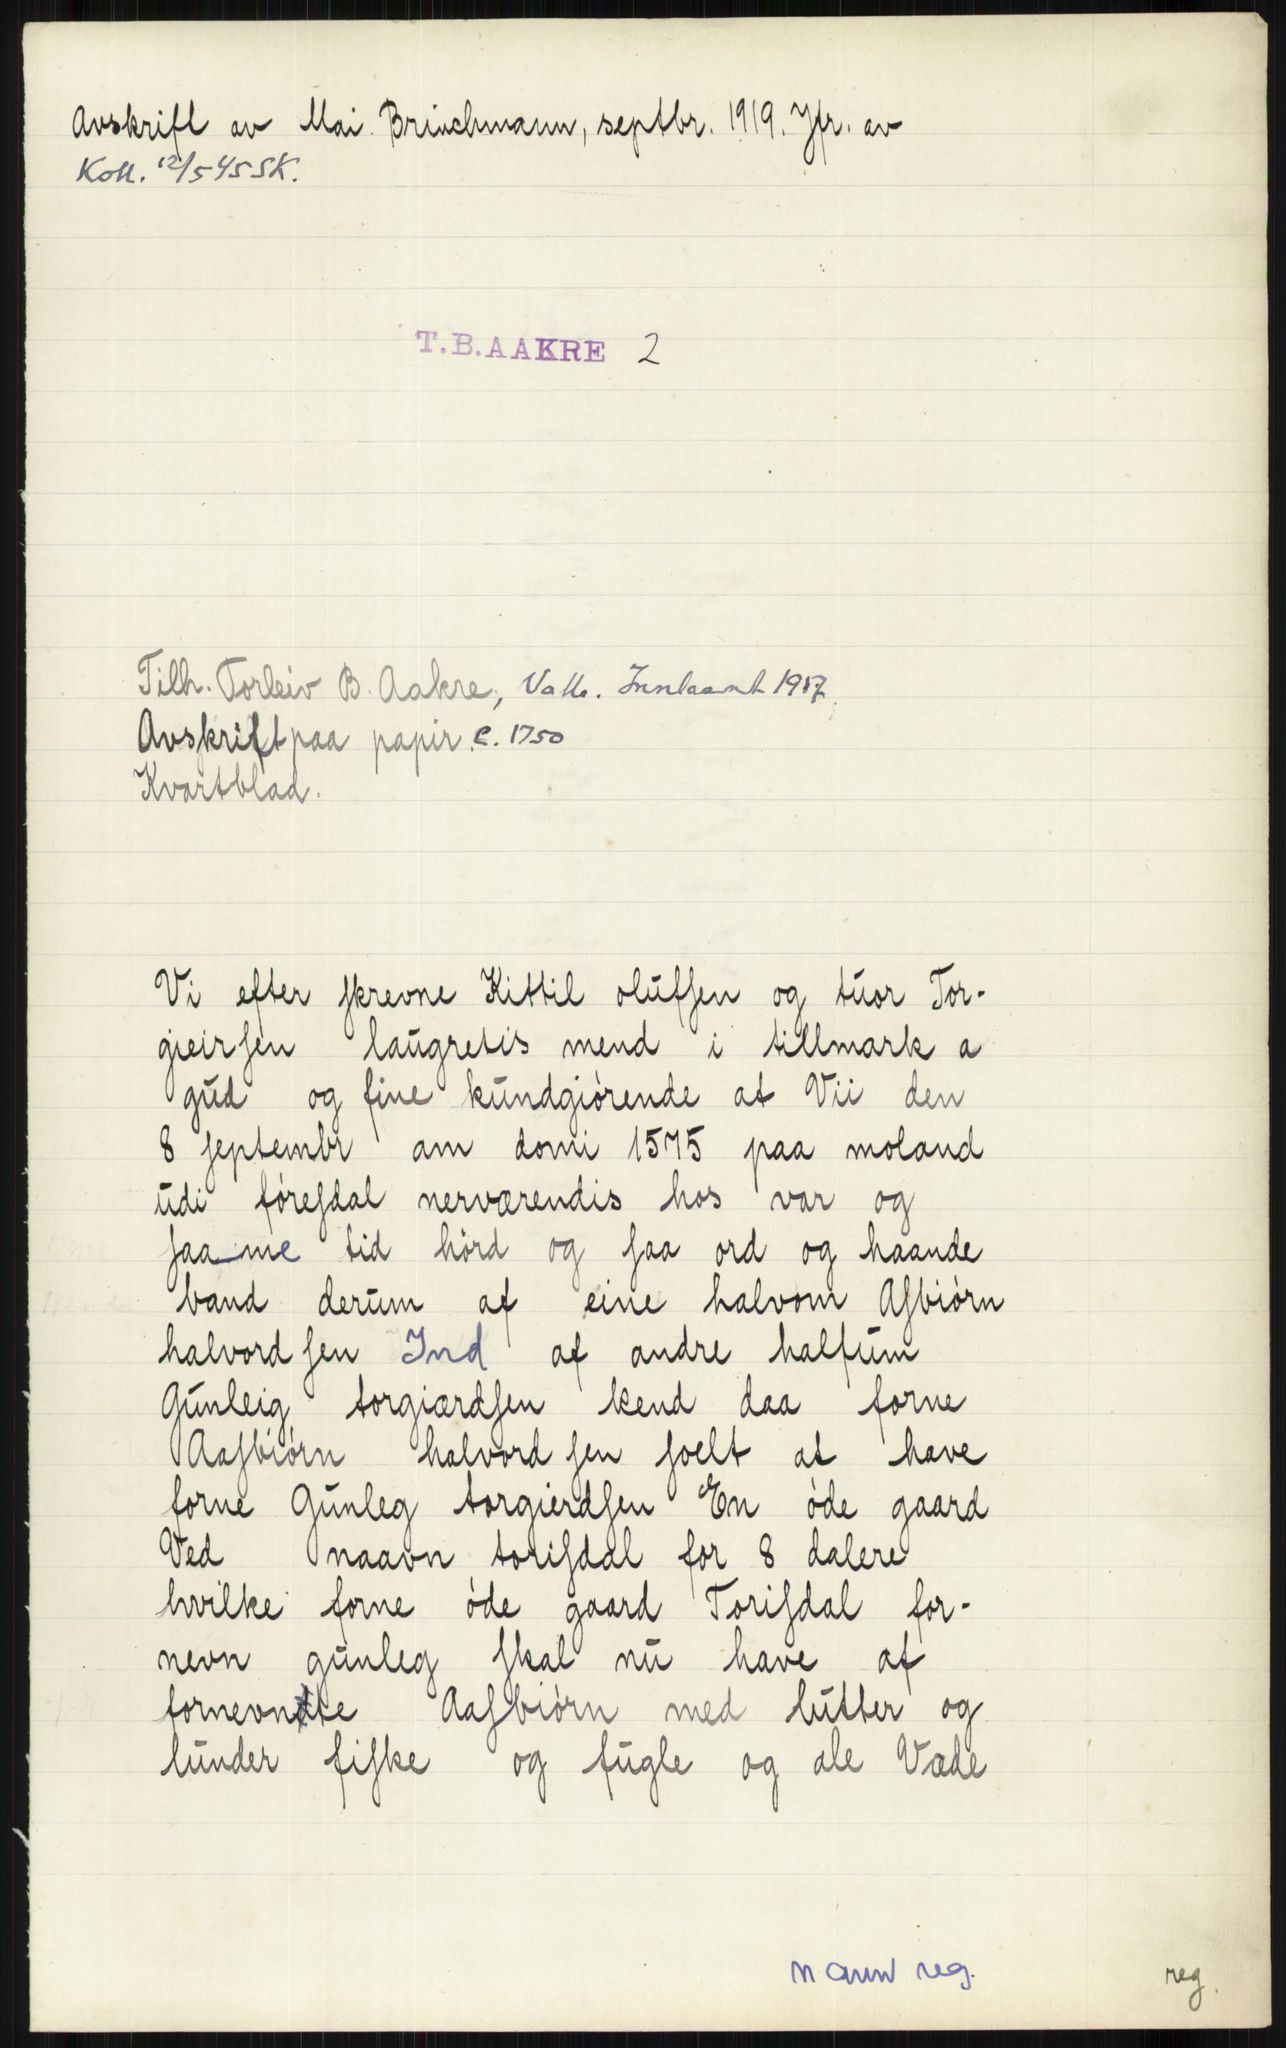 Avskrift av Mai Brinchmann, septbr. 1919. Jfr. av
Koll. 12/5 45 SK.
T.B. AAKRE 2
Tilh. Torleiv B. Aakre, Valle. Innlaant 1917.
Avskrift paa papir c. 1750
Kvartblad.
Vi efter skrevne Kittil olufsen og tuor Tor-
gieirsen laugretis mend i tillmark a
gud og fine kundgiörende at Vii den
8 septembr am domi 1575 paa moland
udi föresdal nerværendis hos var og
saa me tid hörd og saa ord og haande
band derum af eine halvom Asbiörn
halvord sen Ind af andre halfum
Gunleig torgiærdsen kend daa forne
Aasbiörn halvord sen soelt at have
forne Gunleg torgierdsen En öde gaard
Ved naavn torisdal for 8 dalere
hvilke forne öde gaard Torisdal for-
nevn gunleg skal nu have af
fornevntte Aasbiörn med lutter og
lunder fiske og fugle og ale Væde
navn reg.
reg.